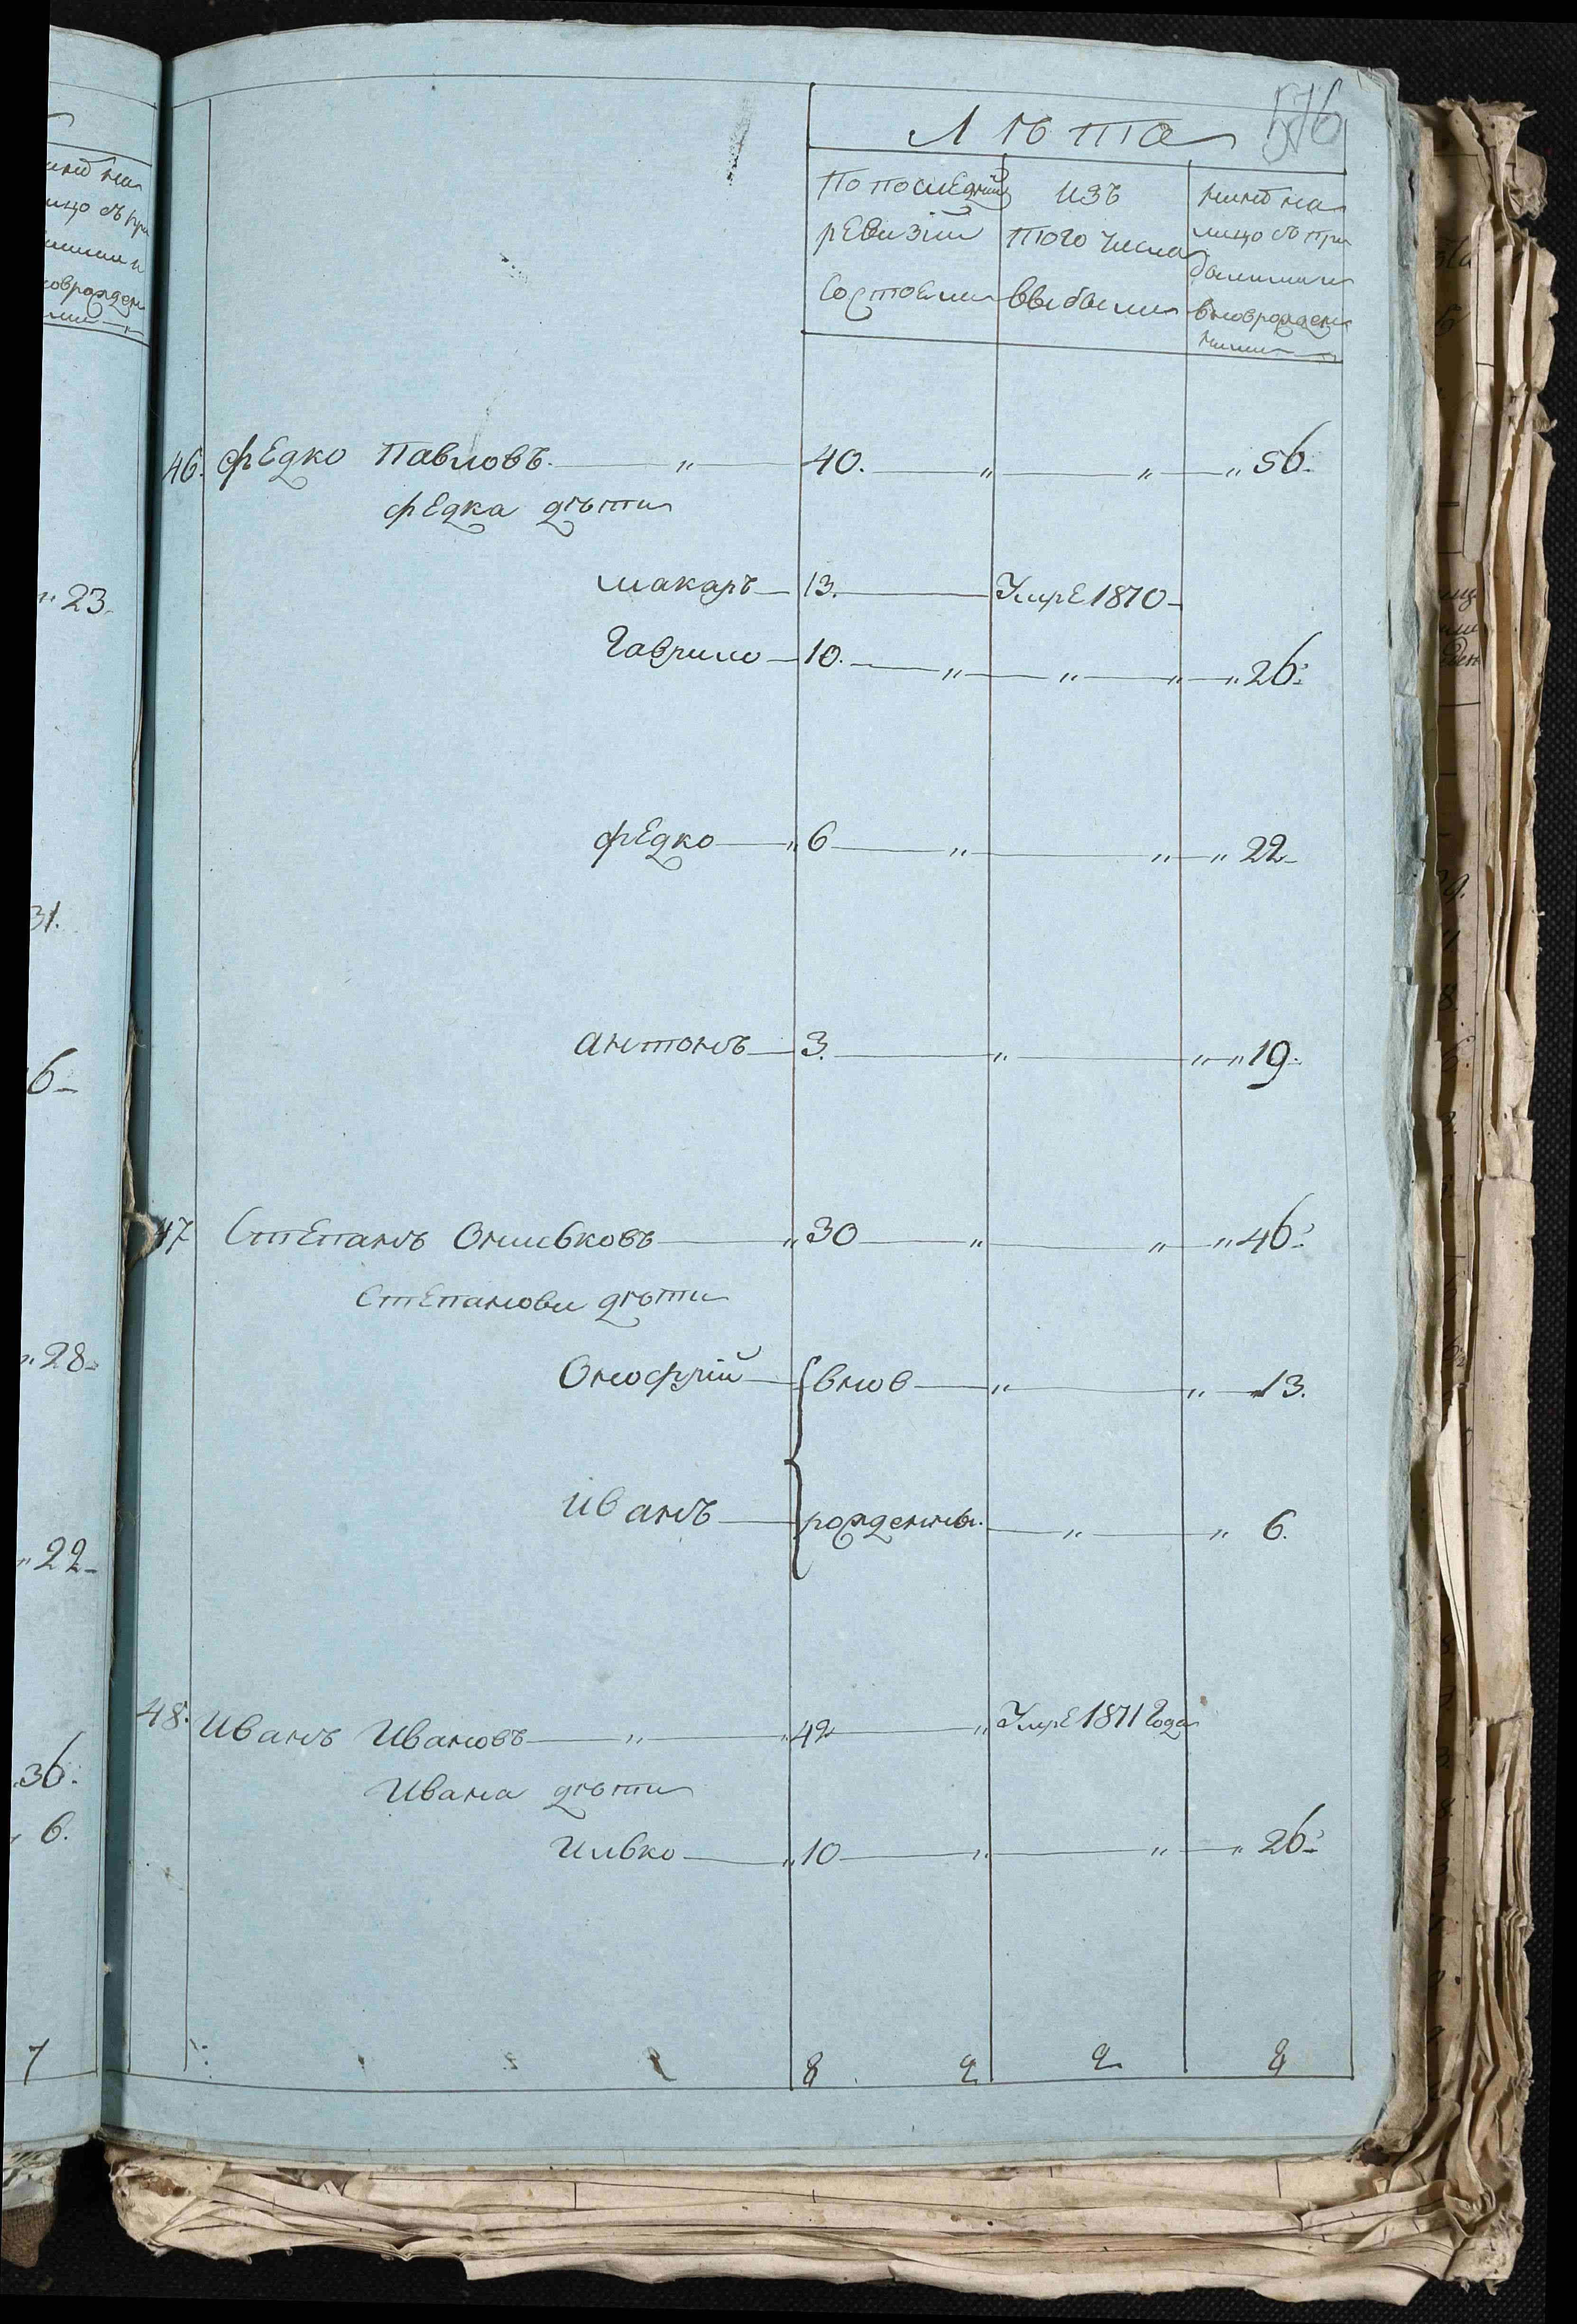 23.
31.
6
28
22
36.
6.
7
576
Лѣта
По послѣдній ревизіи Состоели
изъ того числа выбыли
нинѣ на лицо съ прибалими и вновврожденними
46. фЕдко Павловъ. 40. 56.
фЕдка дѣти
макаръ 13. УмрЕ 1810
Гаврило 10. 26.
фЕдко 6 22
антонъ 3. 19.
47 СтЕпанъ Онисковъ 30 46.
СтЕпанови дѣти
Онофрій внов 13.
иванъ рожденны. 6.
48. Иванъ Ивановъ 42 УмрЕ 1811 Года
Ивана дѣти
Илько 10 26.
8 2 2 8